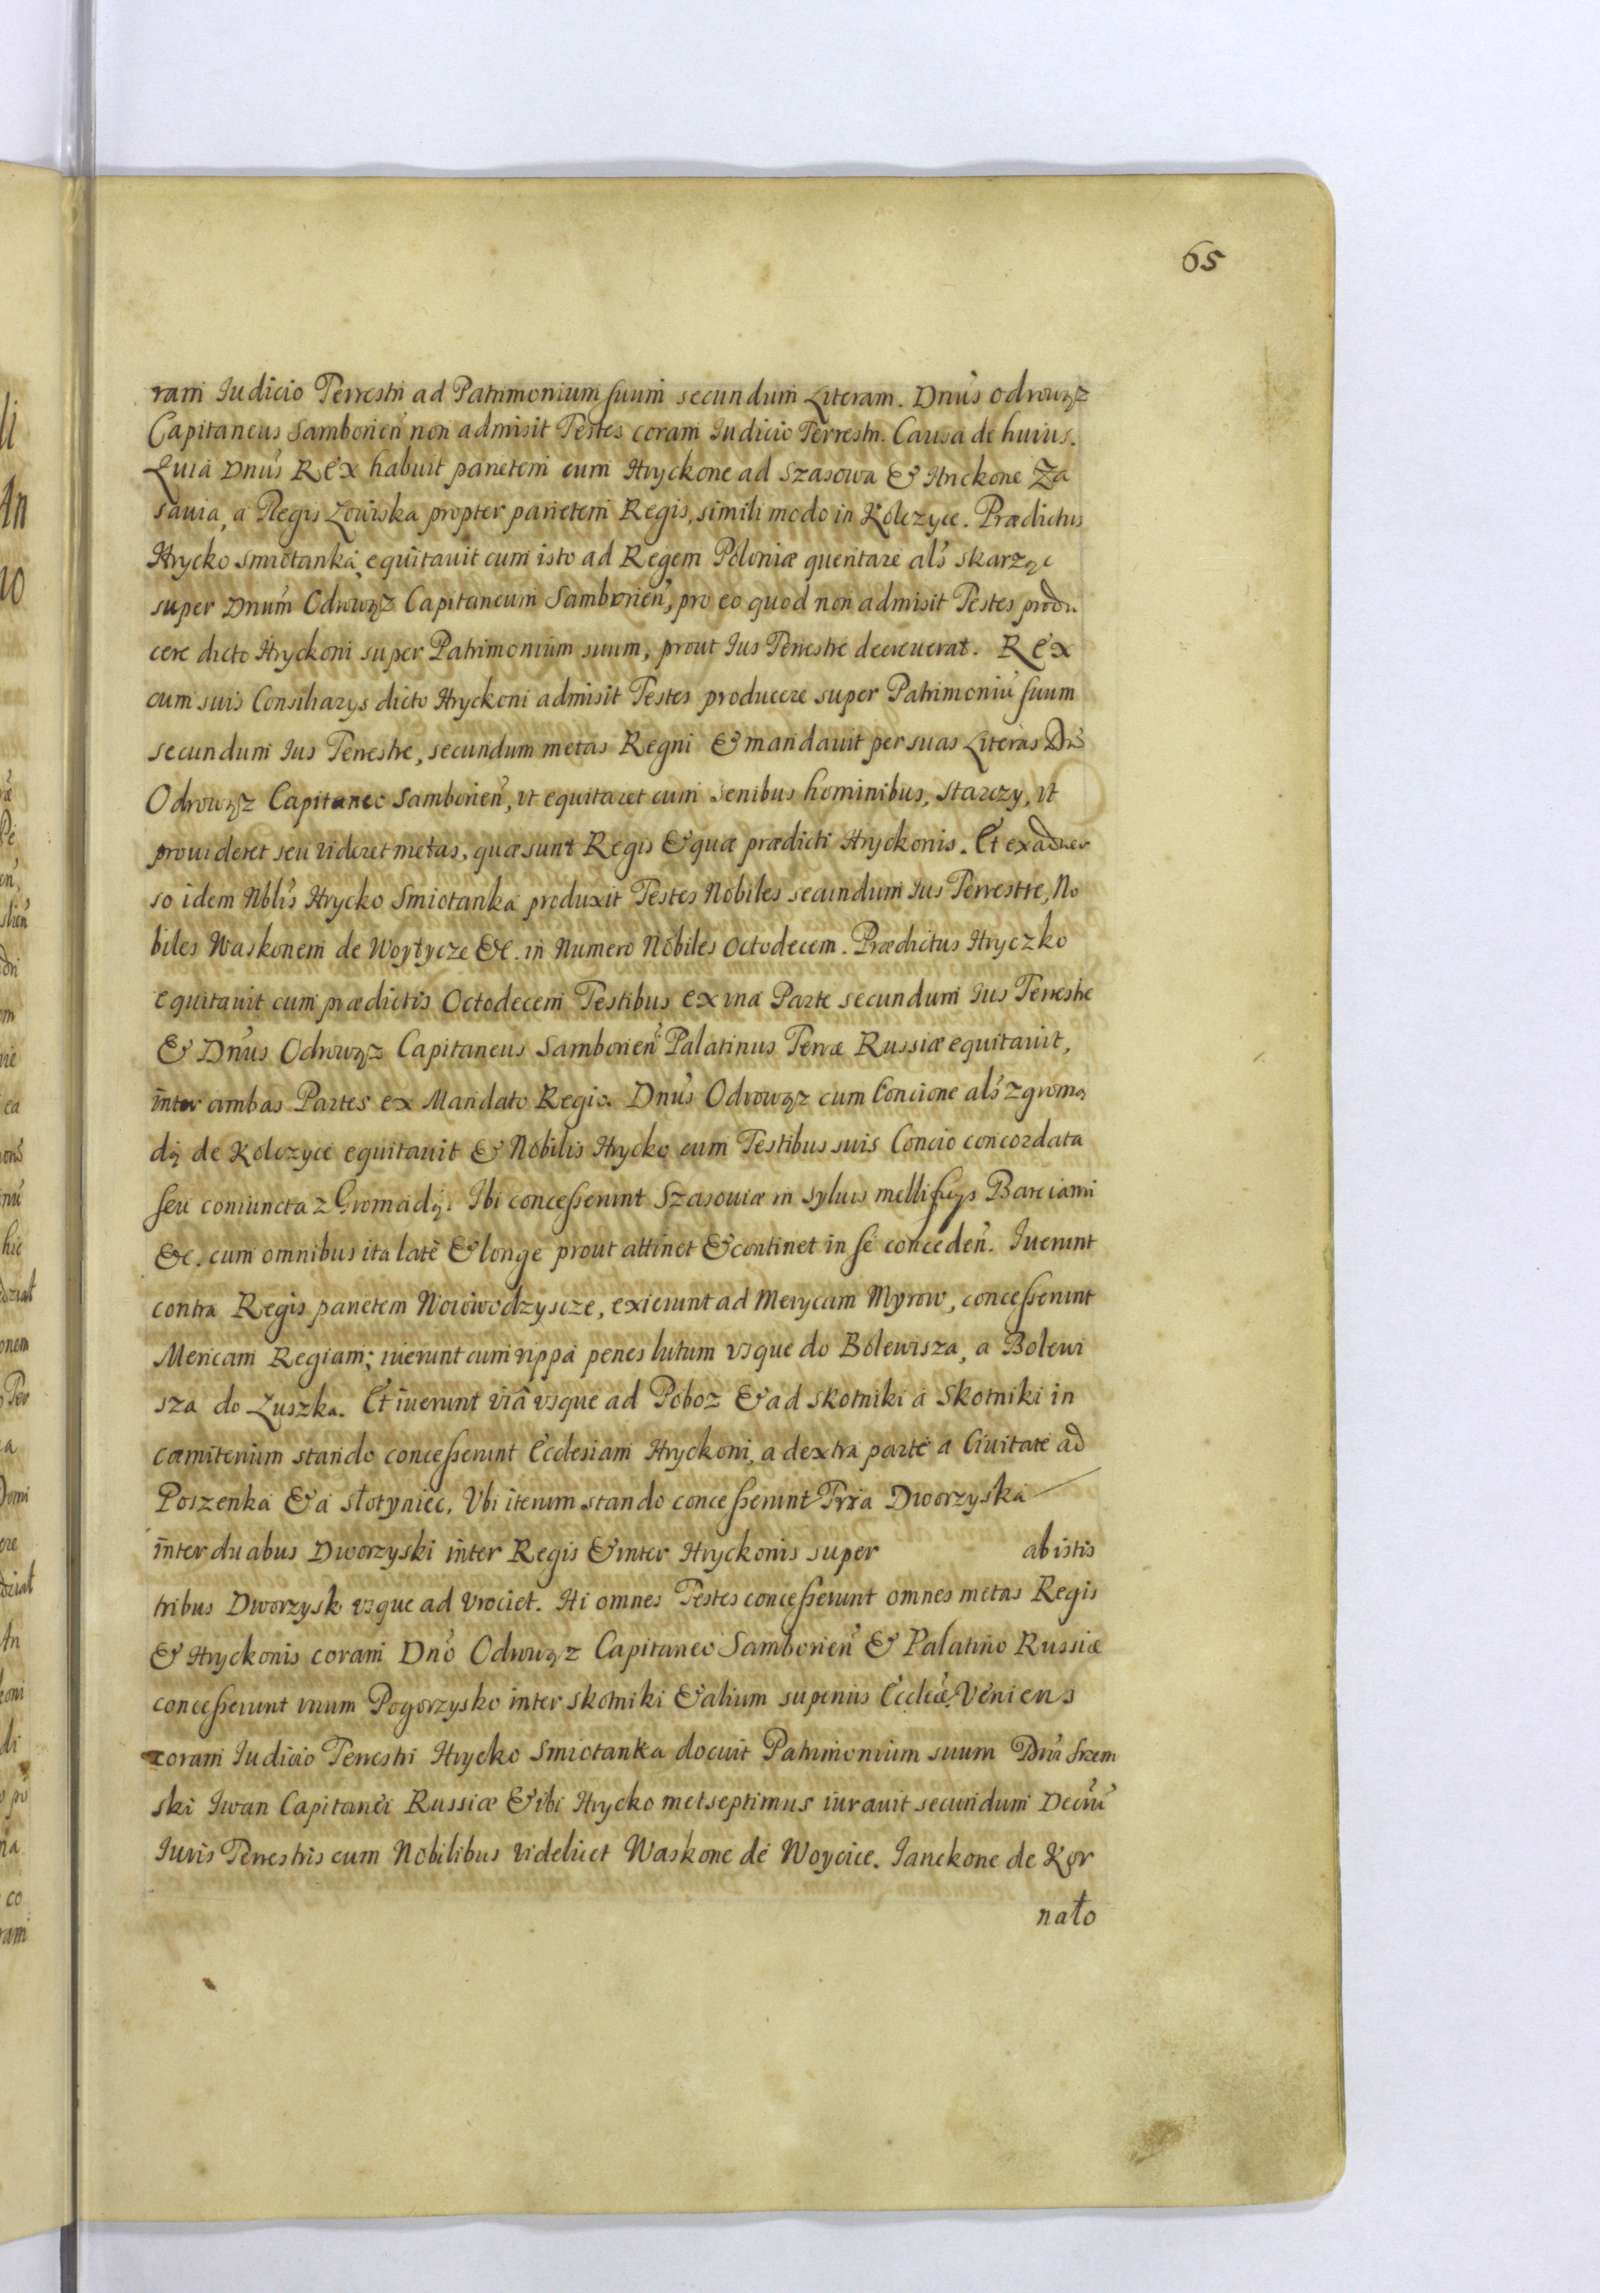 65
ram Iudicio Terrestri ad Patrimonium suum secundum Literam. Dnus Odrowąz
Capitaneus Samborien non admisit Testes coram Iudicio Terrestri. Causa de huius.
Quia Dnus Rex habuit parietem cum Hryckone ad Szasowa & Hrickone Za
savia, a Regis Lowiska propter parietem Regis, simili modo in Kolczyce. Prædictus
Hrycko Smiotanka, equitavit cum isto ad Regem Poloniæ queritare als skarzyc
super Dnum Odrowąz Capitaneum Samborien, pro eo quod non admisit Testes produ
cere dicto Hryckoni super Patrimonium suum, prout Ius Terrestre decreuerat. Rex
cum suis Consiliarys dicto Hryckoni admisit Testes producere super Patrimoniu suum
secundum Ius Terrestre, secundum metas Regni & mandauit per suas Literas Dno
Odrowąz Capitaneo Samborien, vt equitaret cum senibus hominibus, starczy, vt
prouideret seu videret metas, quæ sunt Regis & quæ prædicti Hryckonis. Et ex aduer
so idem Nblis Hrycko Smiotanka produxit Testes Nobiles secundum Ius Terrestre, No
biles Waskonem de Woytycze &c. in Numero Nobiles Octodecem. Prædictus Hryczko
equitauit cum prædictis Octodecem Testibus ex vna Parte secundum Ius Terrestre
& Dnus Odrowąz Capitaneus Samborien Palatinus Terræ Russiæ equitauit,
inter ambas Partes ex Mandato Regio. Dnus Odrowąz cum Concione als zgroma
dą de Kolczyce equitauit & Nobilis Hrycko cum Testibus suis Concio concordata
seu coniuncta z Gromadą. Ibi concesserunt Szasouiæ in syluis mellifugs Barciami
&c. cum omnibus ita latè & longe prout attinet & continet in se conceden. Iuerunt
contra Regis parietem Nowiwodzyscze, exierunt ad Merycam Myrow, concesserunt
Mericam Regiam; iuerunt cum rippa penes lutum vsque do Bolewisza, a Bolewi
sza do Luszka. Et iuerunt viâ vsque ad Poboz & ad Skotniki a Skotniki in
cæmiterium stando concesserunt Ecclesiam Hryckoni, a dextra parte a Ciuitate ad
Poszenka & a słotyniec. Vbi iterum stando concesserunt Tria Dworzyska
inter duabus Dworzyski inter Regis & inter Hryckonis super ab istis
tribus Dworzysk vsque ad Vrociet. Hi omnes Testes concesserunt omnes metas Regis
& Hryckonis coram Dno Odrowąz Capitaneo Samborien & Palatino Russiæ
concesserunt vnum Pogorzysko inter Skotniki & alium superius Eccleæ Veniens
coram Iudicio Terrestri Hrycko Smiotanka docuit Patrimonium suum Dni Srzem
ski Iwan Capitanei Russiæ & ibi Hrycko metseptimus iurauit secundum Decru
Iuris Terrestris cum Nobilibus videlicet Waskone de Woycice. Ianckone de Kor
nało